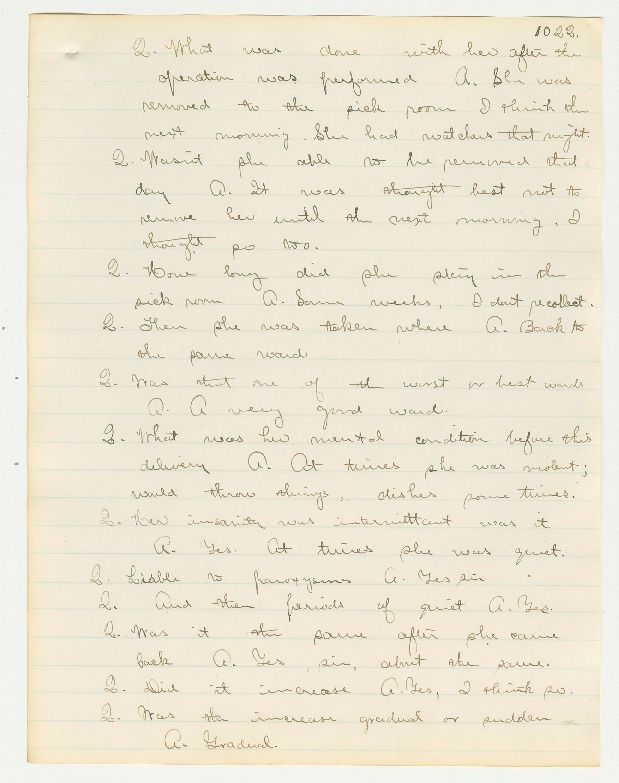 1022.
Q. What was done with her after the
operation was performed A. She was
removed to the sick room I think the
next morning. She had watchers that night.
Q. Wasn't she able to be removed that
day A. It was thought best not to
remove her until the next morning. I
thought so too.
Q. How long did she stay in the
sick room A. Some weeks, I don't recollect.
Q. Then she was taken where A. Back to
the same ward
Q. Was that one of the worst or best wards
A. A very good ward.
Q. What was her mental condition before this
delivery A. At times she was violent;
would throw things, dishes some times.
Q. Her insanity was intermittant was it
A. Yes. At times she was quiet.
Q. Liable to paroxysms A. Yes sir
Q. And then periods of quiet A. Yes.
Q. Was it the same after she came
back A. Yes, sir, about the same.
Q. Did it increase A. Yes, I think so.
Q. Was the increase gradual or sudden
A. Gradual.